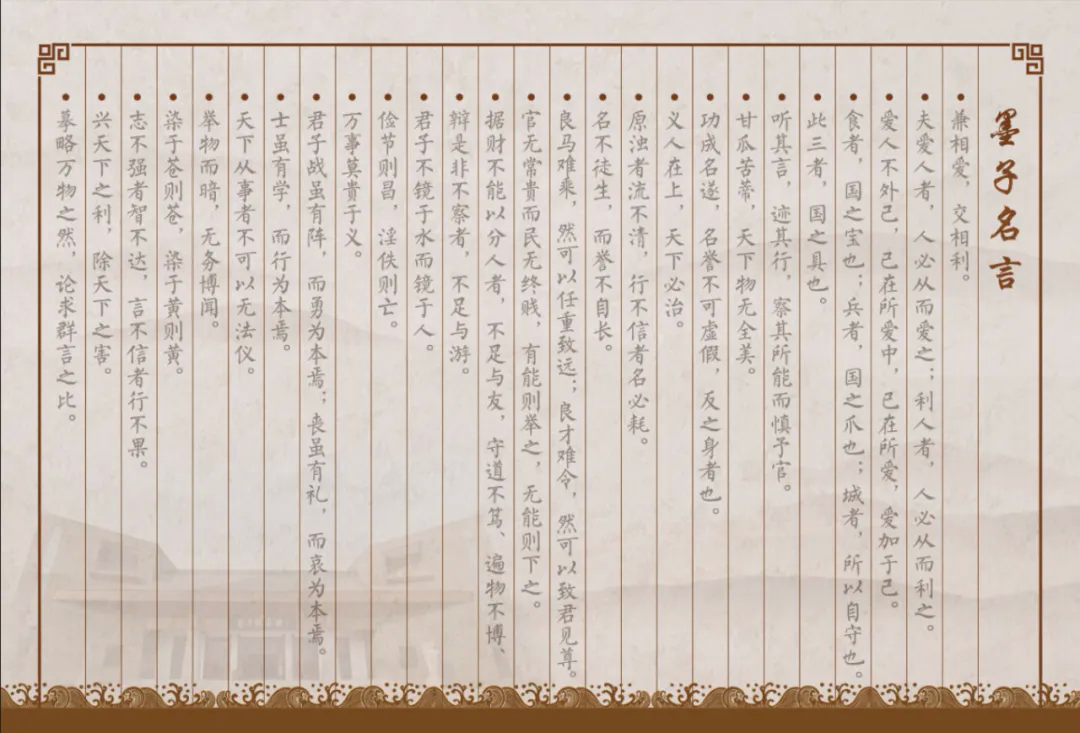 墨子名言
• 兼相爱，交相利。
• 夫爱人者，人必从而爱之；利人者，人必从而利之。
• 爱人不外己，己在所爱中，己在所爱，爱加于己。
• 食者，国之宝也；兵者，国之爪也；城者，所以自守也。
• 此三者，国之具也。
• 听其言，迹其行，察其所能而慎予官。
• 甘瓜苦蒂，天下物无全美。
• 功成名遂，名誉不可虚假，反之身者也。
• 义人在上，天下必治。
• 原浊者流不清，行不信者名必耗。
• 名不徒生，而誉不自长。
• 良马难乘，然可以任重致远；良才难令，然可以致君见尊。
• 官无常贵而民无终贱，有能则举之，无能则下之。
• 据财不能以分人者，不足与友，守道不笃、遍物不博、
• 辩是非不察者，不足与游。
• 君子不镜于水而镜于人。
• 俭节则昌，淫佚则亡。
• 万事莫贵于义。
• 君子战虽有阵，而勇为本焉；丧虽有礼，而哀为本焉。
• 士虽有学，而行为本焉。
• 天下从事者不可以无法仪。
• 举物而暗，无务博闻。
• 染于苍则苍，染于黄则黄。
• 志不强者智不达，言不信者行不果。
• 兴天下之利，除天下之害。
• 摹略万物之然，论求群言之比。